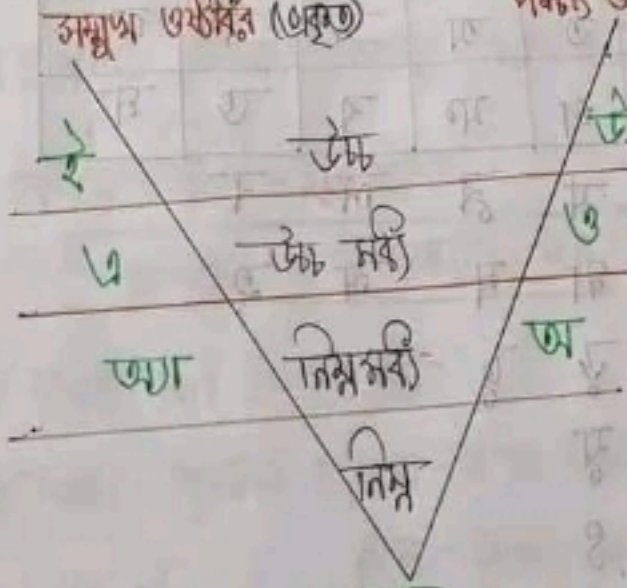 সম্মুখ ওষ্ঠাধর (প্রসৃত)
ই উচ্চ উ
এ উচ্চ মধ্য ও
অ্যা নিম্নমধ্য অ
নিম্ন